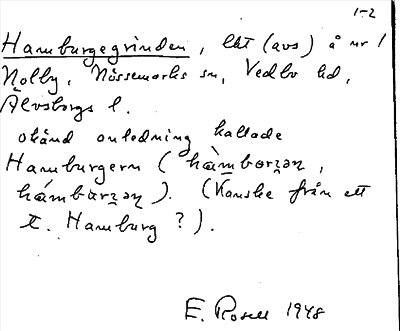 1-2
Hamburgegrinden, lht (avs) å nr 1
Nolby, Nössemarks sn, Vedbo hd,
Älvsborgs l.
okänd anledning kallade
Hamburgern (hàmborʒəɳ,
hámbarʒəɳ). (Kanske från ett
t. Hamburg ?).
E. Rosell 1948